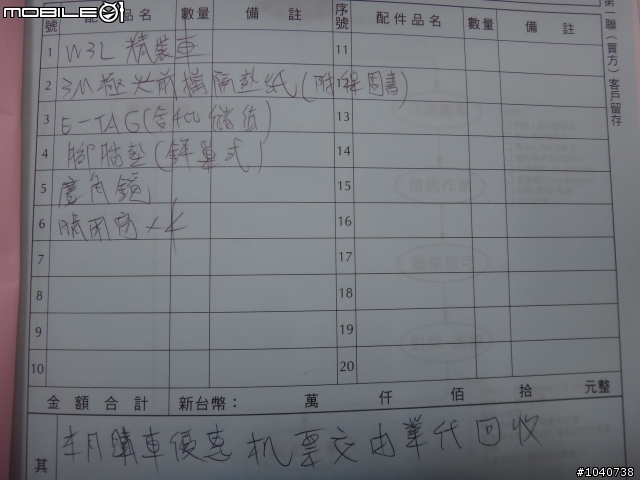 mobile01
號 品名 數量 備註 序號 配件品名 數量 備註
第一聯(買方)客戶留存
1 W3L 精裝車 11
2 3M極光前擋隔熱紙(附保固書)
3 E-TAG(含400儲值) 13
4 腳踏墊(蜂巢式) 14
5 廣角鏡 15
6 晴雨窗×4 16
7 17
8 18
9 19
10 20
金額合計 新台幣: 萬 仟 佰 拾 元整
其 本月購車優惠机票交由業代回收
#1040738